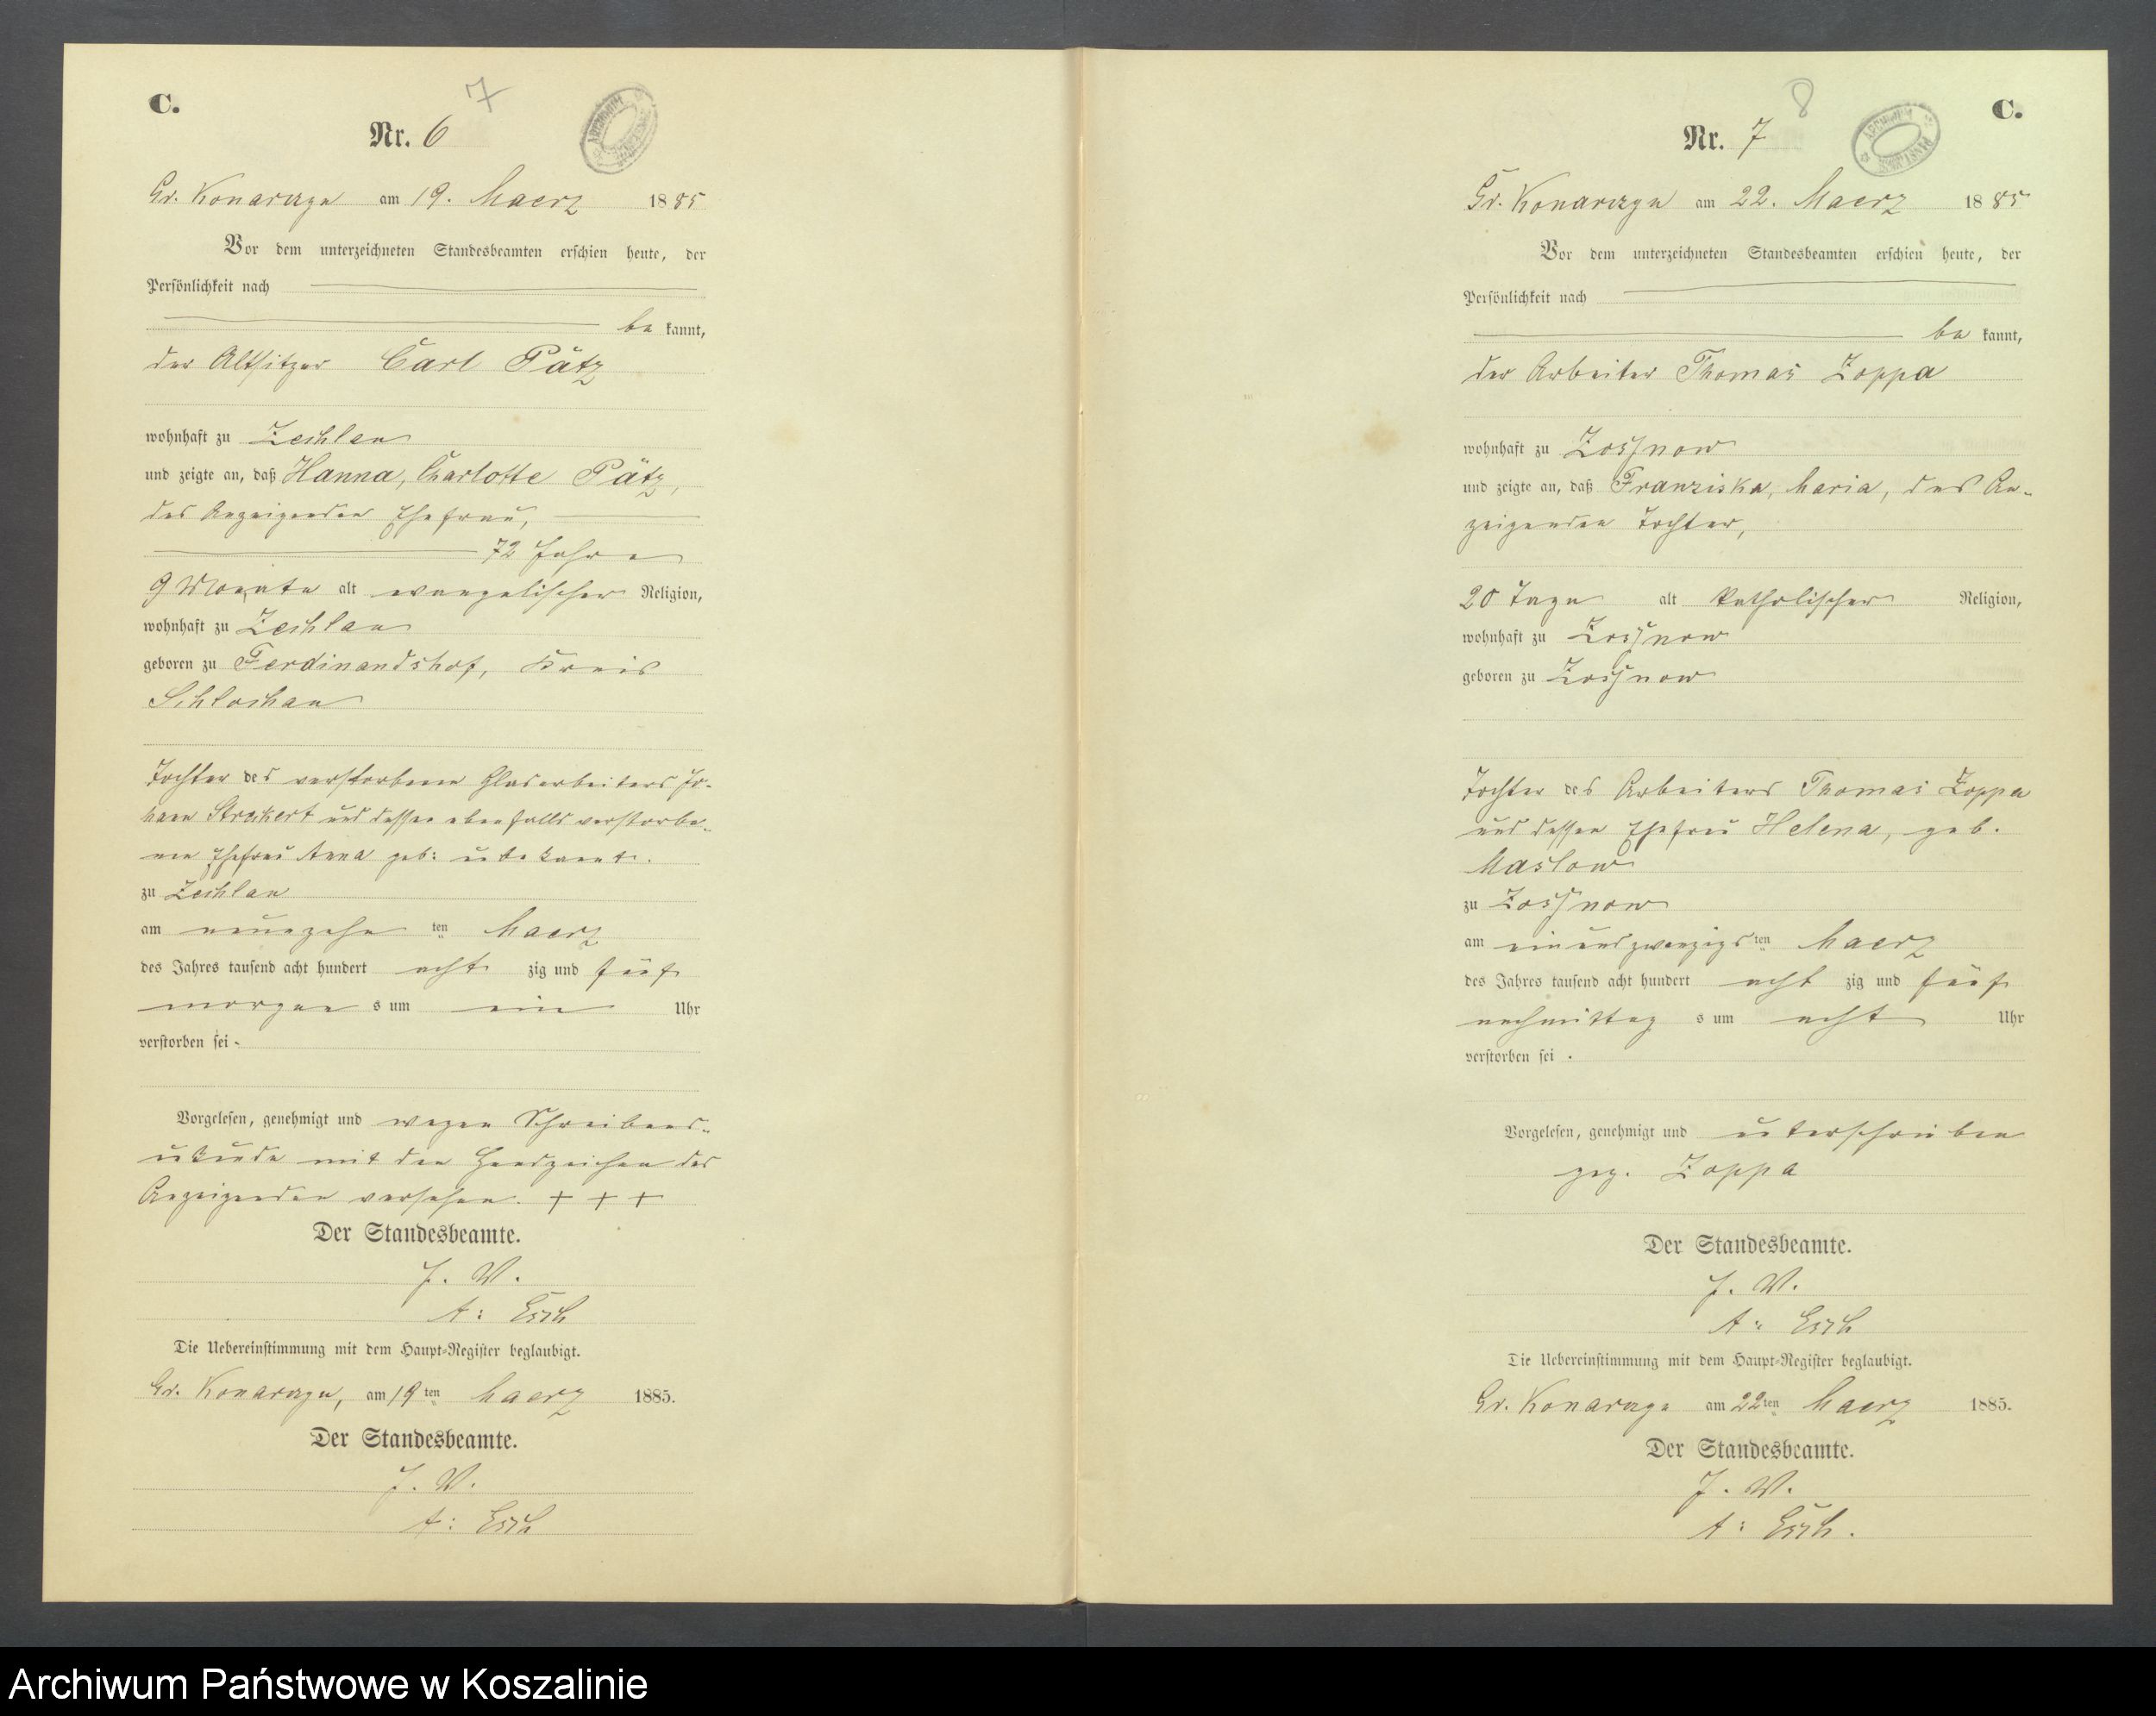 C.
7
Nr. 6
Gr. Konarczyn am 19. Maerz 1885
Vor dem unterzeichneten Standesbeamten erschien heute, der
Persönlichkeit nach
be kannt,
der Altsitzer Carl Pätz
wohnhaft zu Zechlau
und zeigte an, daß Hanna, Charlotte Pätz,
des Anzeigenden Ehefrau,
72 Jahre
9 Monate alt evangelischer Religion,
wohnhaft zu Zechlau
geboren zu Ferdinandshof, Kreis
Schlochau
Tochter des verstorbenen Glasarbeiters Jo-
hann und dessen ebenfalls verstorbe-
nen Ehefrau Anna geb: unbekannt.
zu Zechlau
am neunzehn ten Maerz
des Jahres tausend acht hundert acht zig und fünf
morgen s um ein Uhr
verstorben sei.
Vorgelesen, genehmigt und wegen Schreibens-
unkunde mit den Handzeichen des
Anzeigenden versehen. + + +
Der Standesbeamte.
J. V.
A: Esch
Die Uebereinstimmung mit dem Haupt-Register beglaubigt.
Gr. Konarczyn, am 19ten Maerz 1885.
Der Standesbeamte.
J. V.
A: Esch
8
C.
Nr. 7
Gr. Konarczyn am 22. Maerz 1885
Vor dem unterzeichneten Standesbeamten erschien heute, der
Persönlichkeit nach
be kannt,
der Arbeiter Thomas Zoppa
wohnhaft zu Zossnow
und zeigte an, daß Franziska, Maria, des An-
zeigenden Tochter,
20 Tage alt katholischer Religion,
wohnhaft zu Zossnow
geboren zu Zossnow
Tochter des Arbeiters Thomas Zoppa
und dessen Ehefrau Helena, geb.
Maslow
zu Zossnow
am einundzwanzigs ten Maerz
des Jahres tausend acht hundert acht zig und fünf
nachmittag s um acht Uhr
verstorben sei.
Vorgelesen, genehmigt und unterschrieben
gez. Zoppa
Der Standesbeamte.
J. V.
A: Esch
Die Uebereinstimmung mit dem Haupt-Register beglaubigt.
Gr. Konarczyn am 22ten Maerz 1885.
Der Standesbeamte.
J. V.
A: Esch.
Archiwum Państwowe w Koszalinie